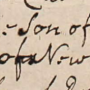 e Son of
of a New